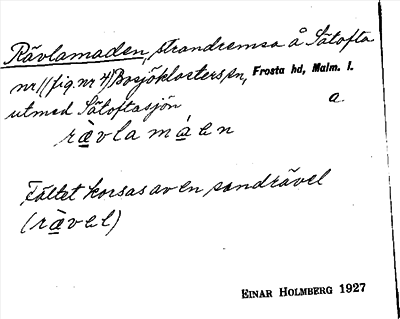 Rävlamaden, strandremsa å Sätofta
nr 1 (fig. nr 4) Bosjöklosters sn, Frosta hd, Malm. l.
utmed Sätoftasjön a.
rävlamáen
Fältet korsas av en sandrävel
(rävel)
EINAR HOLMBERG 1927